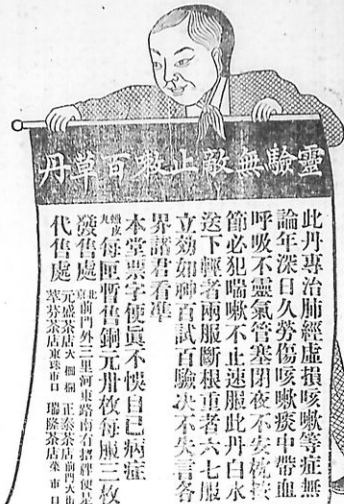 靈驗無敵止嗽百草丹
此丹專治肺經虛損咳嗽等症無
論年深日久勞傷咳嗽痰中帶血
呼吸不靈氣管塞閉夜不安枕按
節必犯喘嗽不止速服此丹白水
送下輕者兩服斷根重者六七服
立効如神百試百驗决不失言各
界諸君看準
本堂票字便眞不悞自己病症
蠟皮丸每匣暫售銅元卅枚每服三枚
發售處 北京前門外三里河東路南有招牌便是
代售處 元盛茶店大柵欄 正泰茶店前門大街
萃芬茶店東珠市口 瑞隆茶店菜市口